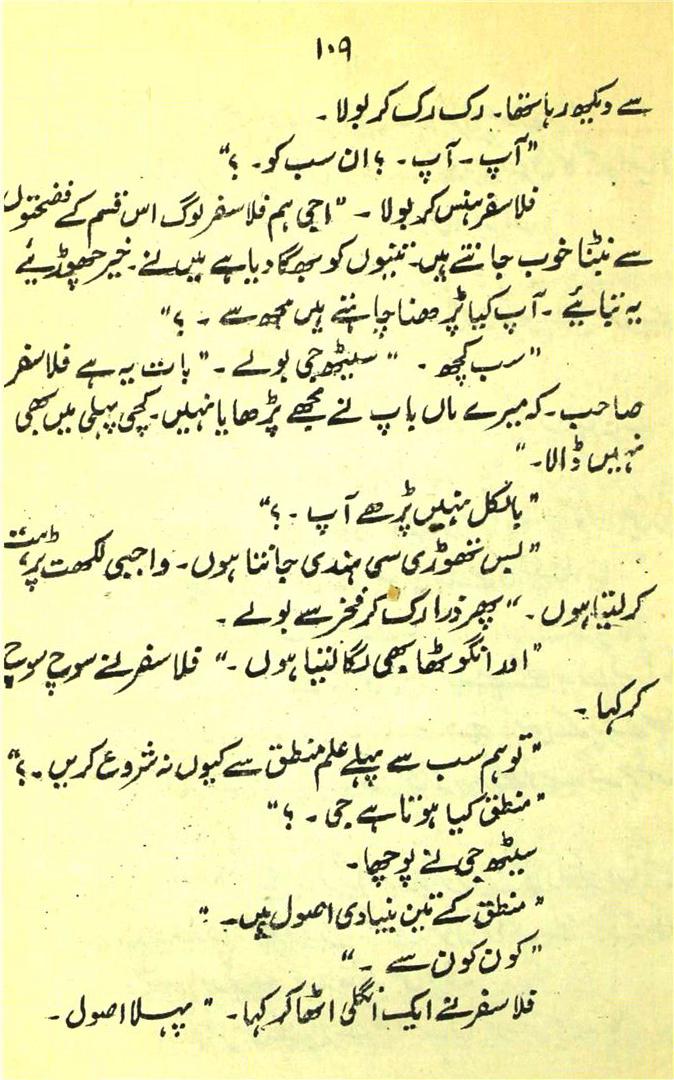 ۱۰۹
سے دیکھ رہا تھا۔ رک رک کر بولا۔
"آپ۔ آپ۔ ؟ ان سب کو۔ ؟"
فلاسفر ہنس کر بولا۔ "اجی ہم فلاسفر لوگ اس قسم کے فضیحتوں
سے نبٹنا خوب جانتے ہیں۔ تینوں کو بھگا دیا ہے میں نے۔ خیر چھوڑیئے
یہ بتایئے۔ آپ کیا پڑھنا چاہتے ہیں مجھ سے۔ ؟"
"سب کچھ۔" سیٹھ جی بولے۔ "بات یہ ہے فلاسفر
صاحب۔ کہ میرے ماں باپ نے مجھے پڑھایا نہیں۔ کچی پہلی میں بھی
نہیں ڈالا۔"
"بالکل نہیں پڑھے آپ۔ ؟"
"بس تھوڑی سی ہندی جانتا ہوں۔ واجبی لکھت پڑھت
کر لیتا ہوں۔" پھر ذرا رک کر فخر سے بولے۔
"اور انگوٹھا بھی لگا لیتا ہوں۔" فلاسفر نے سوچ سوچ
کر کہا۔
"تو ہم سب سے پہلے علم منطق سے کیوں نہ شروع کریں۔ ؟"
"منطق کیا ہوتا ہے جی۔ ؟"
سیٹھ جی نے پوچھا۔
"منطق کے تین بنیادی اصول ہیں۔"
"کون کون سے۔"
فلاسفر نے ایک انگلی اٹھا کر کہا۔ "پہلا اصول۔